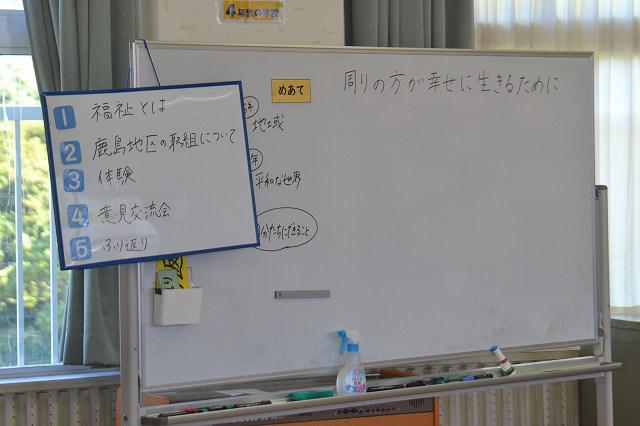 4年生の学習
めあて
周りの方が幸せに生きるために
1 福祉とは
2 鹿島地区の取組について
3 体験
4 意見交流会
5 ふり返り
年
地域
年
平和な世界
分たちにできること